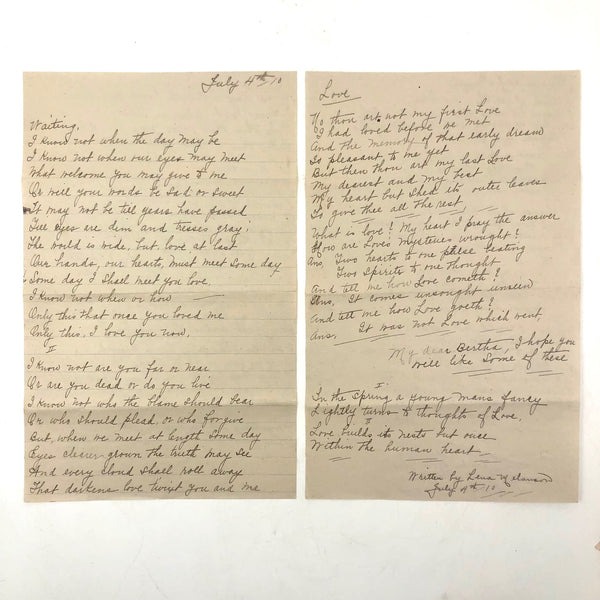 July 4th 10
Waiting,
I know not when the day may be
I know not when our eyes may meet
What welcome you may give to me
Or will your words be sad or sweet
It may not be till years have passed
Till eyes are dim and tresses gray;
The world is wide, but love at last
Our hands, our hearts, must meet some day
Some day I shall meet you love,
I know not when or how
Only this that once you loved me
Only this, I love you now,
II
I know not are you far or near
Or are you dead or do you live
I know not who the blame should bear
Or who should plead, or who forgive
But, when we meet at length some day
Eyes clearer grown the truth may see
And every cloud shall roll away
That darkens love twixt you and me
Love
No thou art not my first Love
I had loved before we met
And the memory of that early dream
Is pleasant to me yet
But then thou art my last Love
My dearest and my best
My heart but shed its outer leaves
To give thee all the rest,
What is love? My heart I pray the answer
How are Loves mysteries wrought?
Ans, Two hearts to one pulse beating
Two spirits to one thought
And tell me how Love cometh?
Ans, It comes unsought unseen
And tell me how Love goeth?
Ans, It was not Love which went,
My dear Bertha, I hope you
will like some of these
I
In the Spring a young mans fancy
Lightly turns to thoughts of Love,
II
Love builds its nests but once
Within the human heart
Written by Lena
July 4th 10